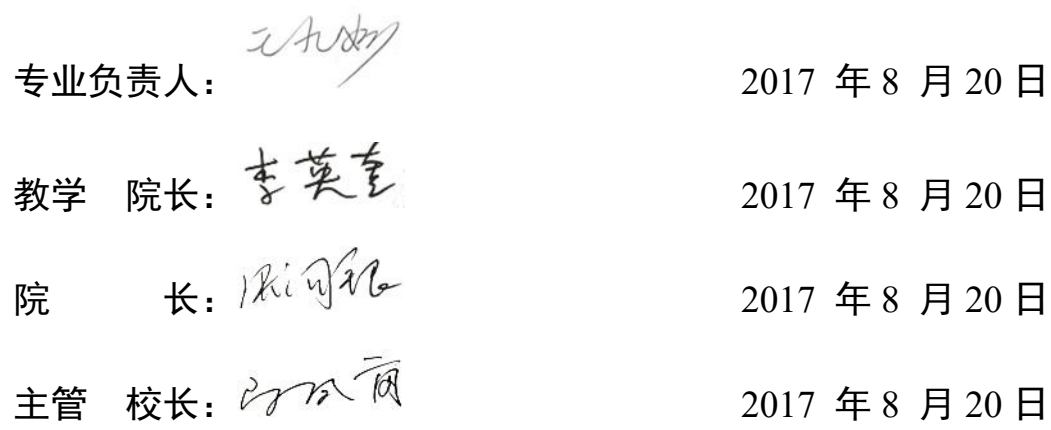 专业负责人： 2017 年 8 月 20 日
教学 院长：李英奎 2017 年 8 月 20 日
院 长： 2017 年 8 月 20 日
主管 校长： 2017 年 8 月 20 日